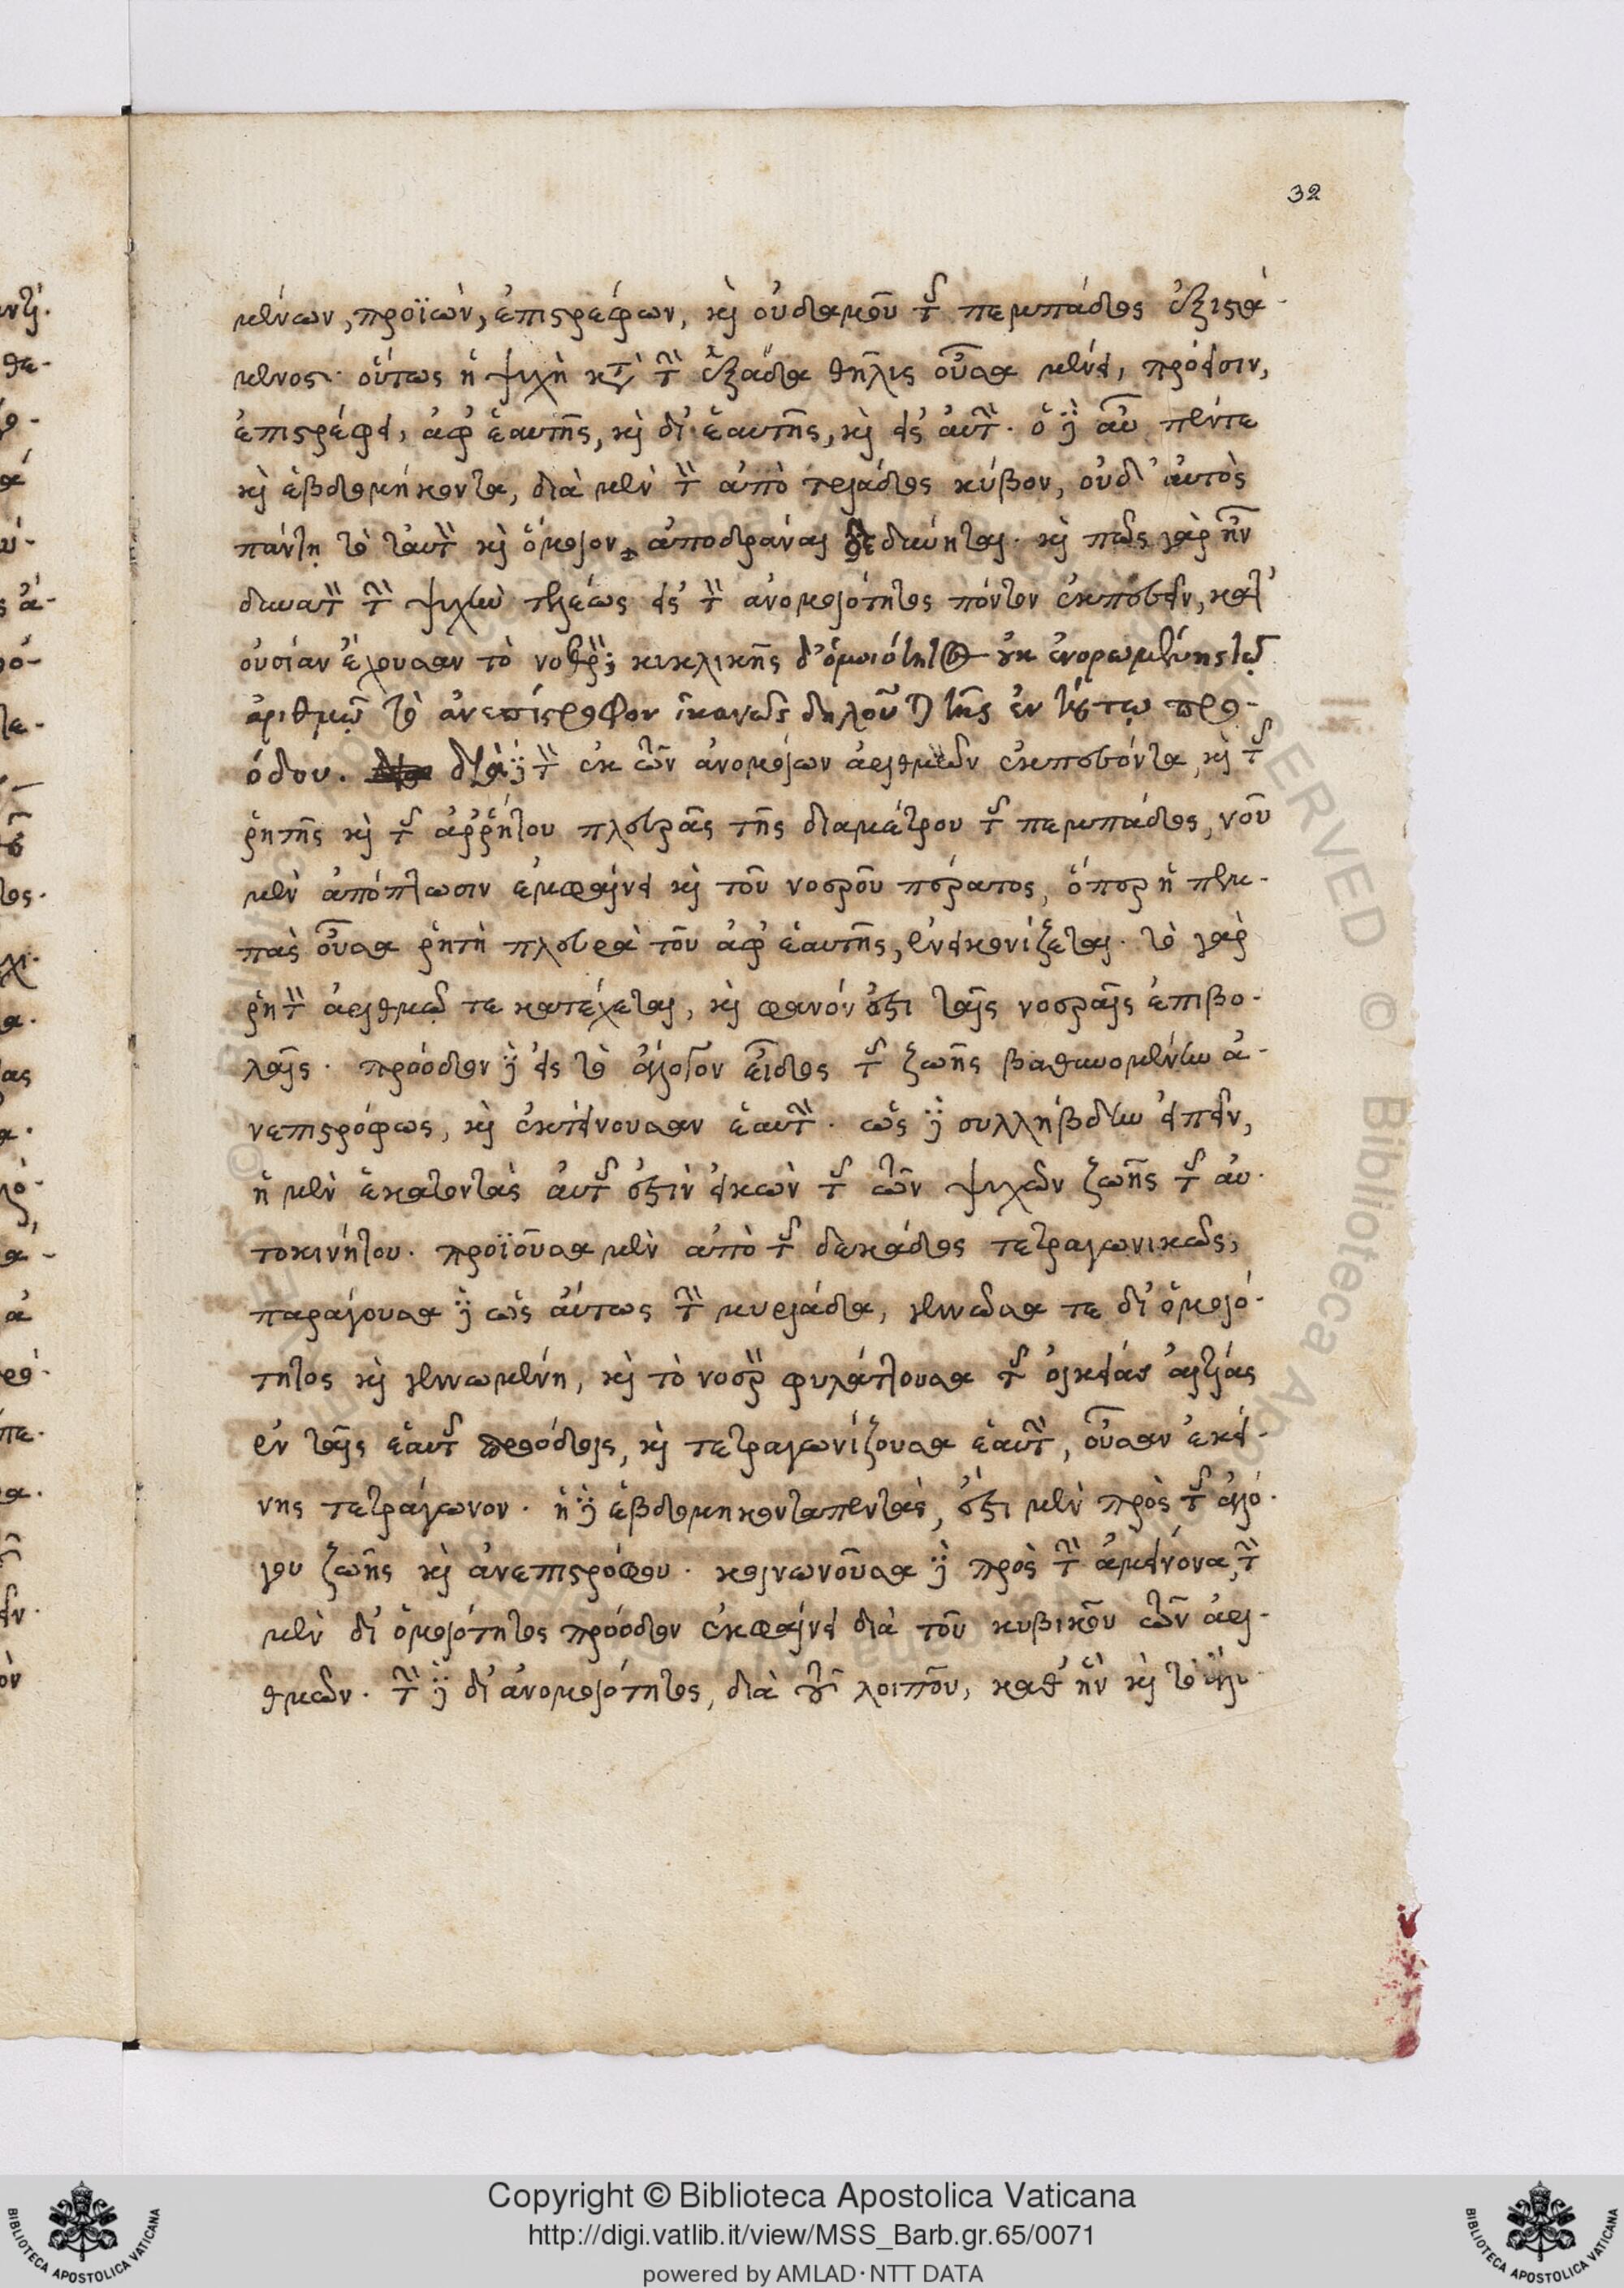 32
μένων, προϊών, ἐπιστρέφων, καὶ οὐδαμοῦ τῆς πεμπάδος ἐξιστά-
μενος· οὕτως ἡ ψυχὴ κατὰ τὴν ἑξάδα θῆλις οὖσα μένει, πρόεισιν,
ἐπιστρέφει, ἀφ' ἑαυτῆς, καὶ δι' ἑαυτῆς, καὶ εἰς αὐτήν. ὁ δὲ αὖ πέντε
καὶ ἑβδομήκοντα, διὰ μὲν τὸν ἀπὸ τριάδος κύβον, οὐδ' αὐτὸς
πάντη τὸ ταυτὸν καὶ ὅμοιον ἀποδρᾶναι δεδύνηται. καὶ πῶς γὰρ ἦν
δυνατὸν τὴν ψυχὴν τελέως εἰς τὸν ἀνομοιότητος πόντον ἐκπεσεῖν, κατ'
οὐσίαν ἔχουσαν τὸ νοερόν; κυκλικῆς δ' ὁμοιότητος οὐκ ἐνορωμένης τῷ
ἀριθμῷ τὸ ἀνεπίστροφον ἱκανῶς δηλοῦται τῆς ἐν τούτῳ προ-
όδου. διὰ δὲ τὸν ἐκ τῶν ἀνομοίων ἀριθμῶν ἐκπεσόντα, καὶ τῆς
ῥητῆς καὶ τῆς ἀῤῥήτου πλευρᾶς τῆς διαμέτρου τῆς πεμπάδος, νοῦ
μὲν ἀπόπτωσιν ἐμφαίνει καὶ τοῦ νοεροῦ πέρατος, ὅπερ ἡ πεμ-
πὰς οὖσα ῥητὴ πλευρὰ τοῦ ἀφ' ἑαυτῆς, ἐνεικονίζεται. τὸ γὰρ
ῥητὸν ἀριθμῷ τε κατέχεται, καὶ φανόν ἐστι ταῖς νοεραῖς ἐπιβο-
λαῖς. πρόοδον δὲ εἰς τὸ ἄλογον εἶδος τῆς ζωῆς βαθυνομένην ἀ-
νεπιστρόφως, καὶ ἐκτείνουσαν ἑαυτήν. ὡς δὲ συλλήβδην εἰπεῖν,
ἡ μὲν ἑκατοντὰς αὐτῆς ἐστὶν εἰκὼν τῆς τῶν ψυχῶν ζωῆς τῆς αὐ-
τοκινήτου. προϊοῦσα μὲν ἀπὸ τῆς δεκάδος τετραγωνικῶς,
παράγουσα δὲ ὡς αὕτως τὴν μυριάδα, γεννῶσα τε δι' ὁμοιό-
τητος καὶ γεννωμένη, καὶ τὸ νοερὸν φυλάττουσα τῆς οἰκείας αἰτίας
ἐν ταῖς ἑαυτῆς προόδοις, καὶ τετραγωνίζουσα ἑαυτήν, οὖσαν ἐκεί-
νης τετράγωνον. ἡ δὲ ἑβδομηκονταπεντὰς, ἐστι μὲν πρὸς τῆς ἀλό-
γου ζωῆς καὶ ἀνεπιστρόφου. κοινωνοῦσα δὲ πρὸς τὴν ἀμείνονα, τὴν
μὲν δι' ὁμοιότητος πρόοδον ἐκφαίνει διὰ τοῦ κυβικοῦ τῶν ἀρι-
θμῶν. τὴν δὲ δι' ἀνομοιότητος, διὰ τοῦ λοιποῦ, καθ' ἣν καὶ τὸ
Copyright © Biblioteca Apostolica Vaticana
http://digi.vatlib.it/view/MSS_Barb.gr.65/0071
powered by AMLAD·NTT DATA
BIBLIOTECA APOSTOLICA VATICANA
BIBLIOTECA APOSTOLICA VATICANA